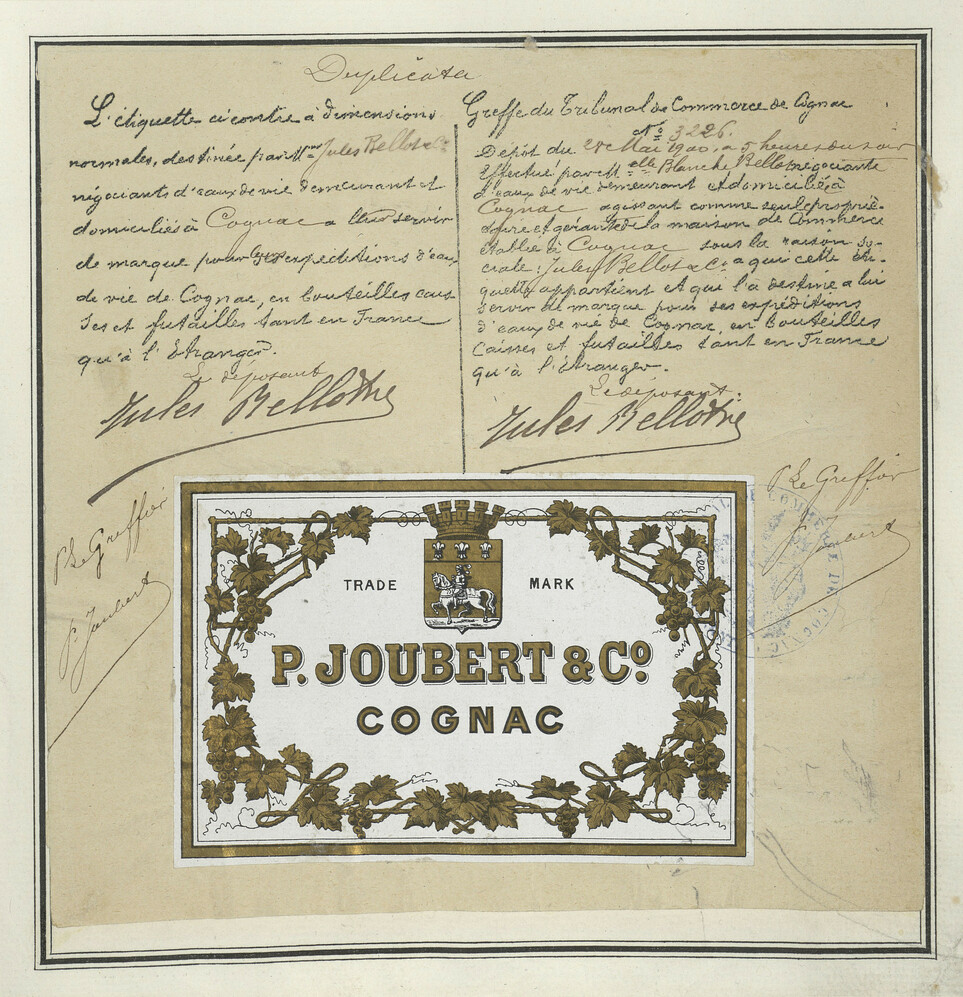 Duplicata
L'étiquette ci contre à dimensions
normales, destinée par Mme Jules Bellot & Cie
négociants d'eaux de vie demeurant et
domiciliés à Cognac a leur servir
de marque pour leurs expeditions d'eaux
de vie de Cognac, en bouteilles cais-
ses et futailles tant en France
qu'à l'Etranger.
Le déposant
Jules Bellot & Cie
P Le Greffier
P. Joubert
Greffe du Tribunal de Commerce de Cognac
No 3226.
Dépot du 28 Mai 1900, a 5 heures du soir
Effectué par Melle Blanche Bellot négociante
d'eaux de vie demeurant et domiciliée à
Cognac agissant comme seule proprié-
taire et gérante de la maison de Commerce
établie à Cognac sous la raison so-
ciale: Jules Bellot & Co a qui cette éti-
quette appartient et qui l'a destine a lui
servir de marque pour ses expéditions
d'eaux de vie de Cognac, en bouteilles
Caisses et futailles tant en France
qu'à l'étranger.
Le déposant:
Jules Bellot & Cie
P Le Greffier
P. Joubert
TRADE MARK
P. JOUBERT & Co.
COGNAC